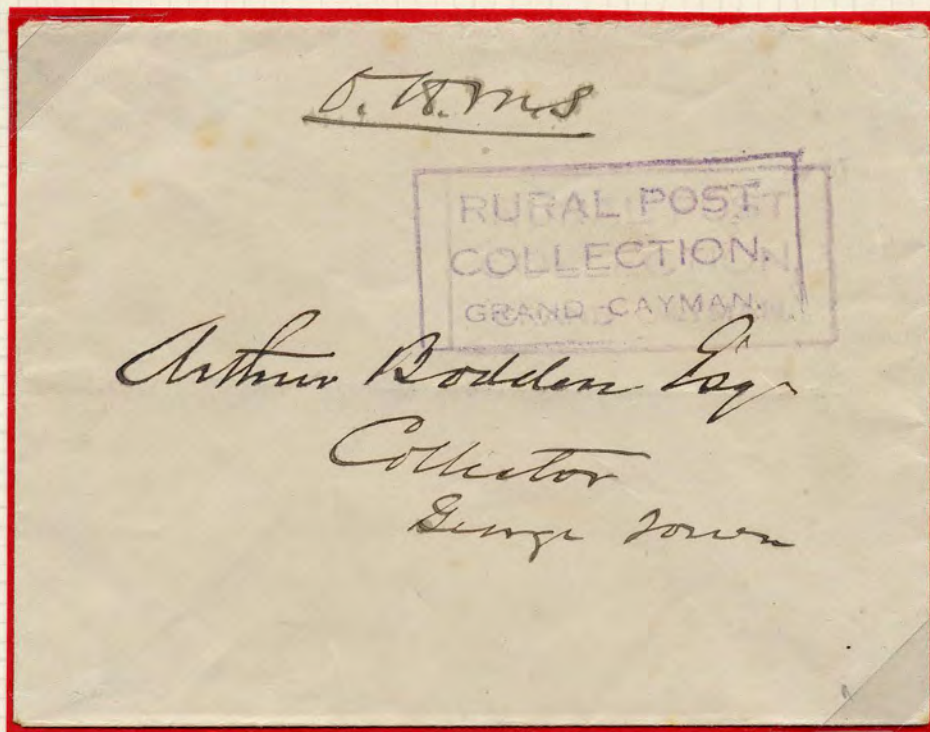 O.H.M.S
RURAL POST
COLLECTION.
GRAND CAYMAN.
Arthur Bodden Esqr
Collector
George Town